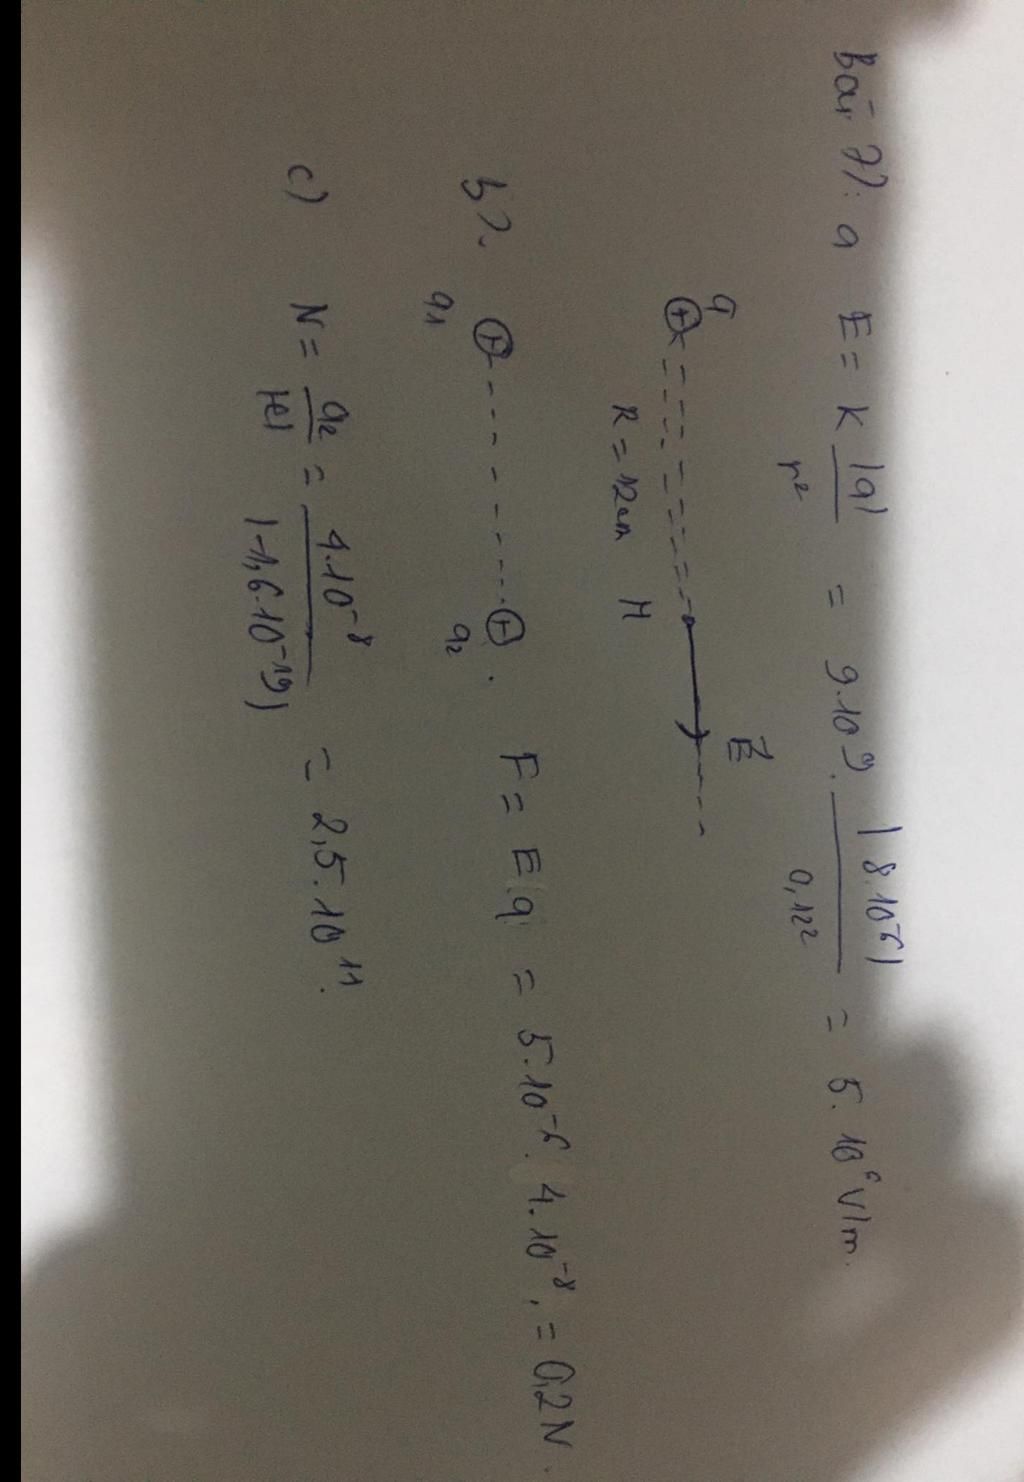 Bài 7): a E = K |q| / r² = 9.10⁹. |8.10⁻⁶| / 0,12² = 5.10⁶ V/m.
q ⊕ E⃗
R = 12cm M
b). ⊕ ⊕ . F = E q = 5.10⁻⁶. 4.10⁻⁸, = 0,2 N.
q₁ q₂
c) N = q₂ / |e| = 4.10⁻⁸ / |-1,6.10⁻¹⁹| = 2,5.10¹¹.